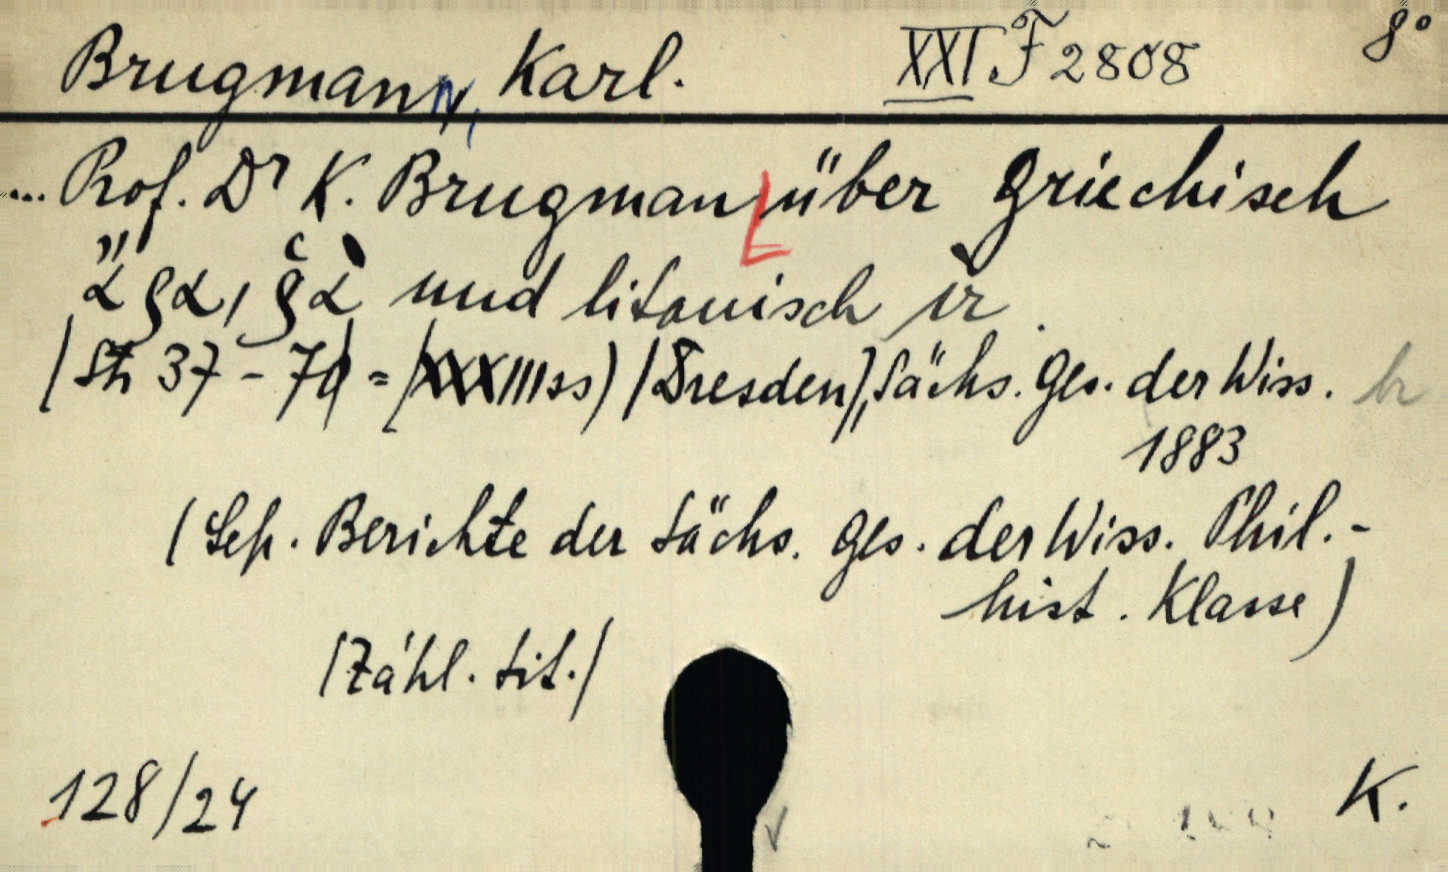 Brugmann, Karl. XXI F 2808 8°
... Prof. Dr K. Brugman über Griechisch
ἄρα, ῥὰ und litauisch ir.
(St 37-70 = (XXXIIIss) (Dresden), Sächs. Ges. der Wiss.
1883
(Sep. Berichte der Sächs. Ges. der Wiss. Phil.-
hist. Klasse)
(Zähl. tit.)
128/24 K.